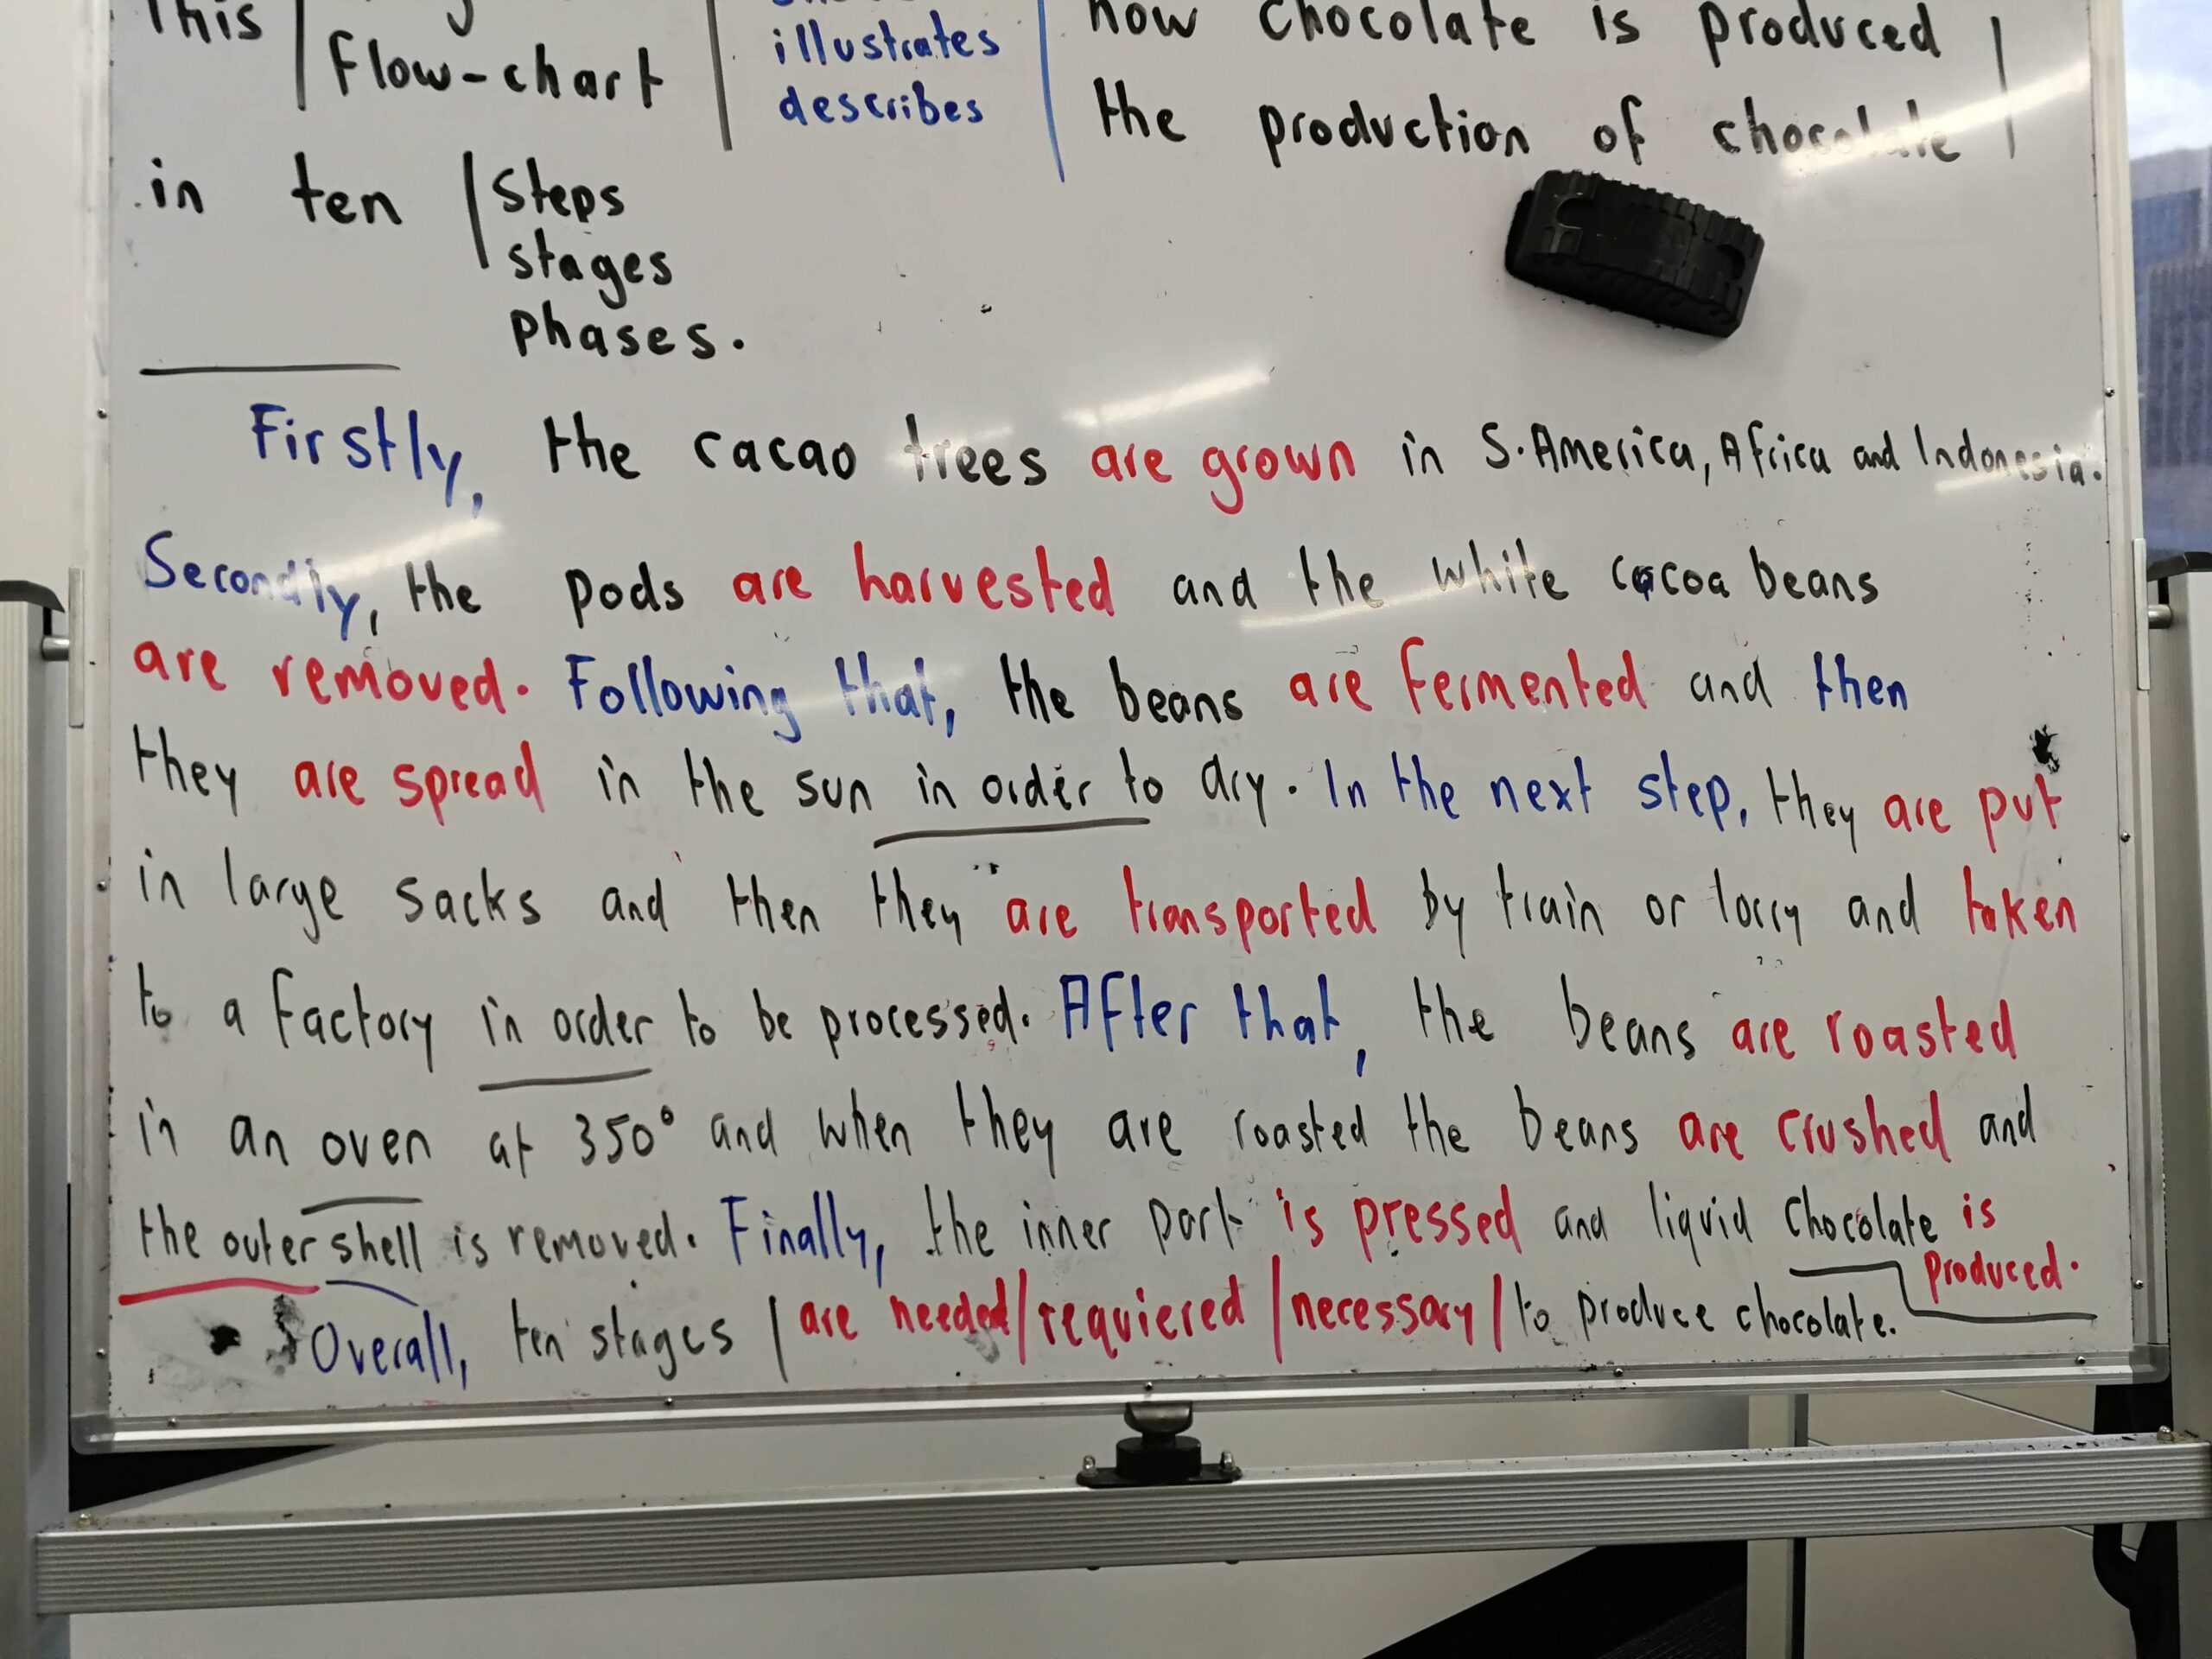 This | flow-chart | illustrates | how chocolate is produced |
describes the production of chocolate
in ten | steps
stages
phases.
Firstly, the cacao trees are grown in S. America, Africa and Indonesia.
Secondly, the pods are harvested and the white cacoa beans
are removed. Following that, the beans are fermented and then
they are spread in the sun in order to dry. In the next step, they are put
in large sacks and then they are transported by train or lorry and taken
to a factory in order to be processed. After that, the beans are roasted
in an oven at 350° and when they are roasted the beans are crushed and
the outer shell is removed. Finally, the inner part is pressed and liquid chocolate is
produced.
Overall, ten stages | are needed/requiered/necessary/to produce chocolate.